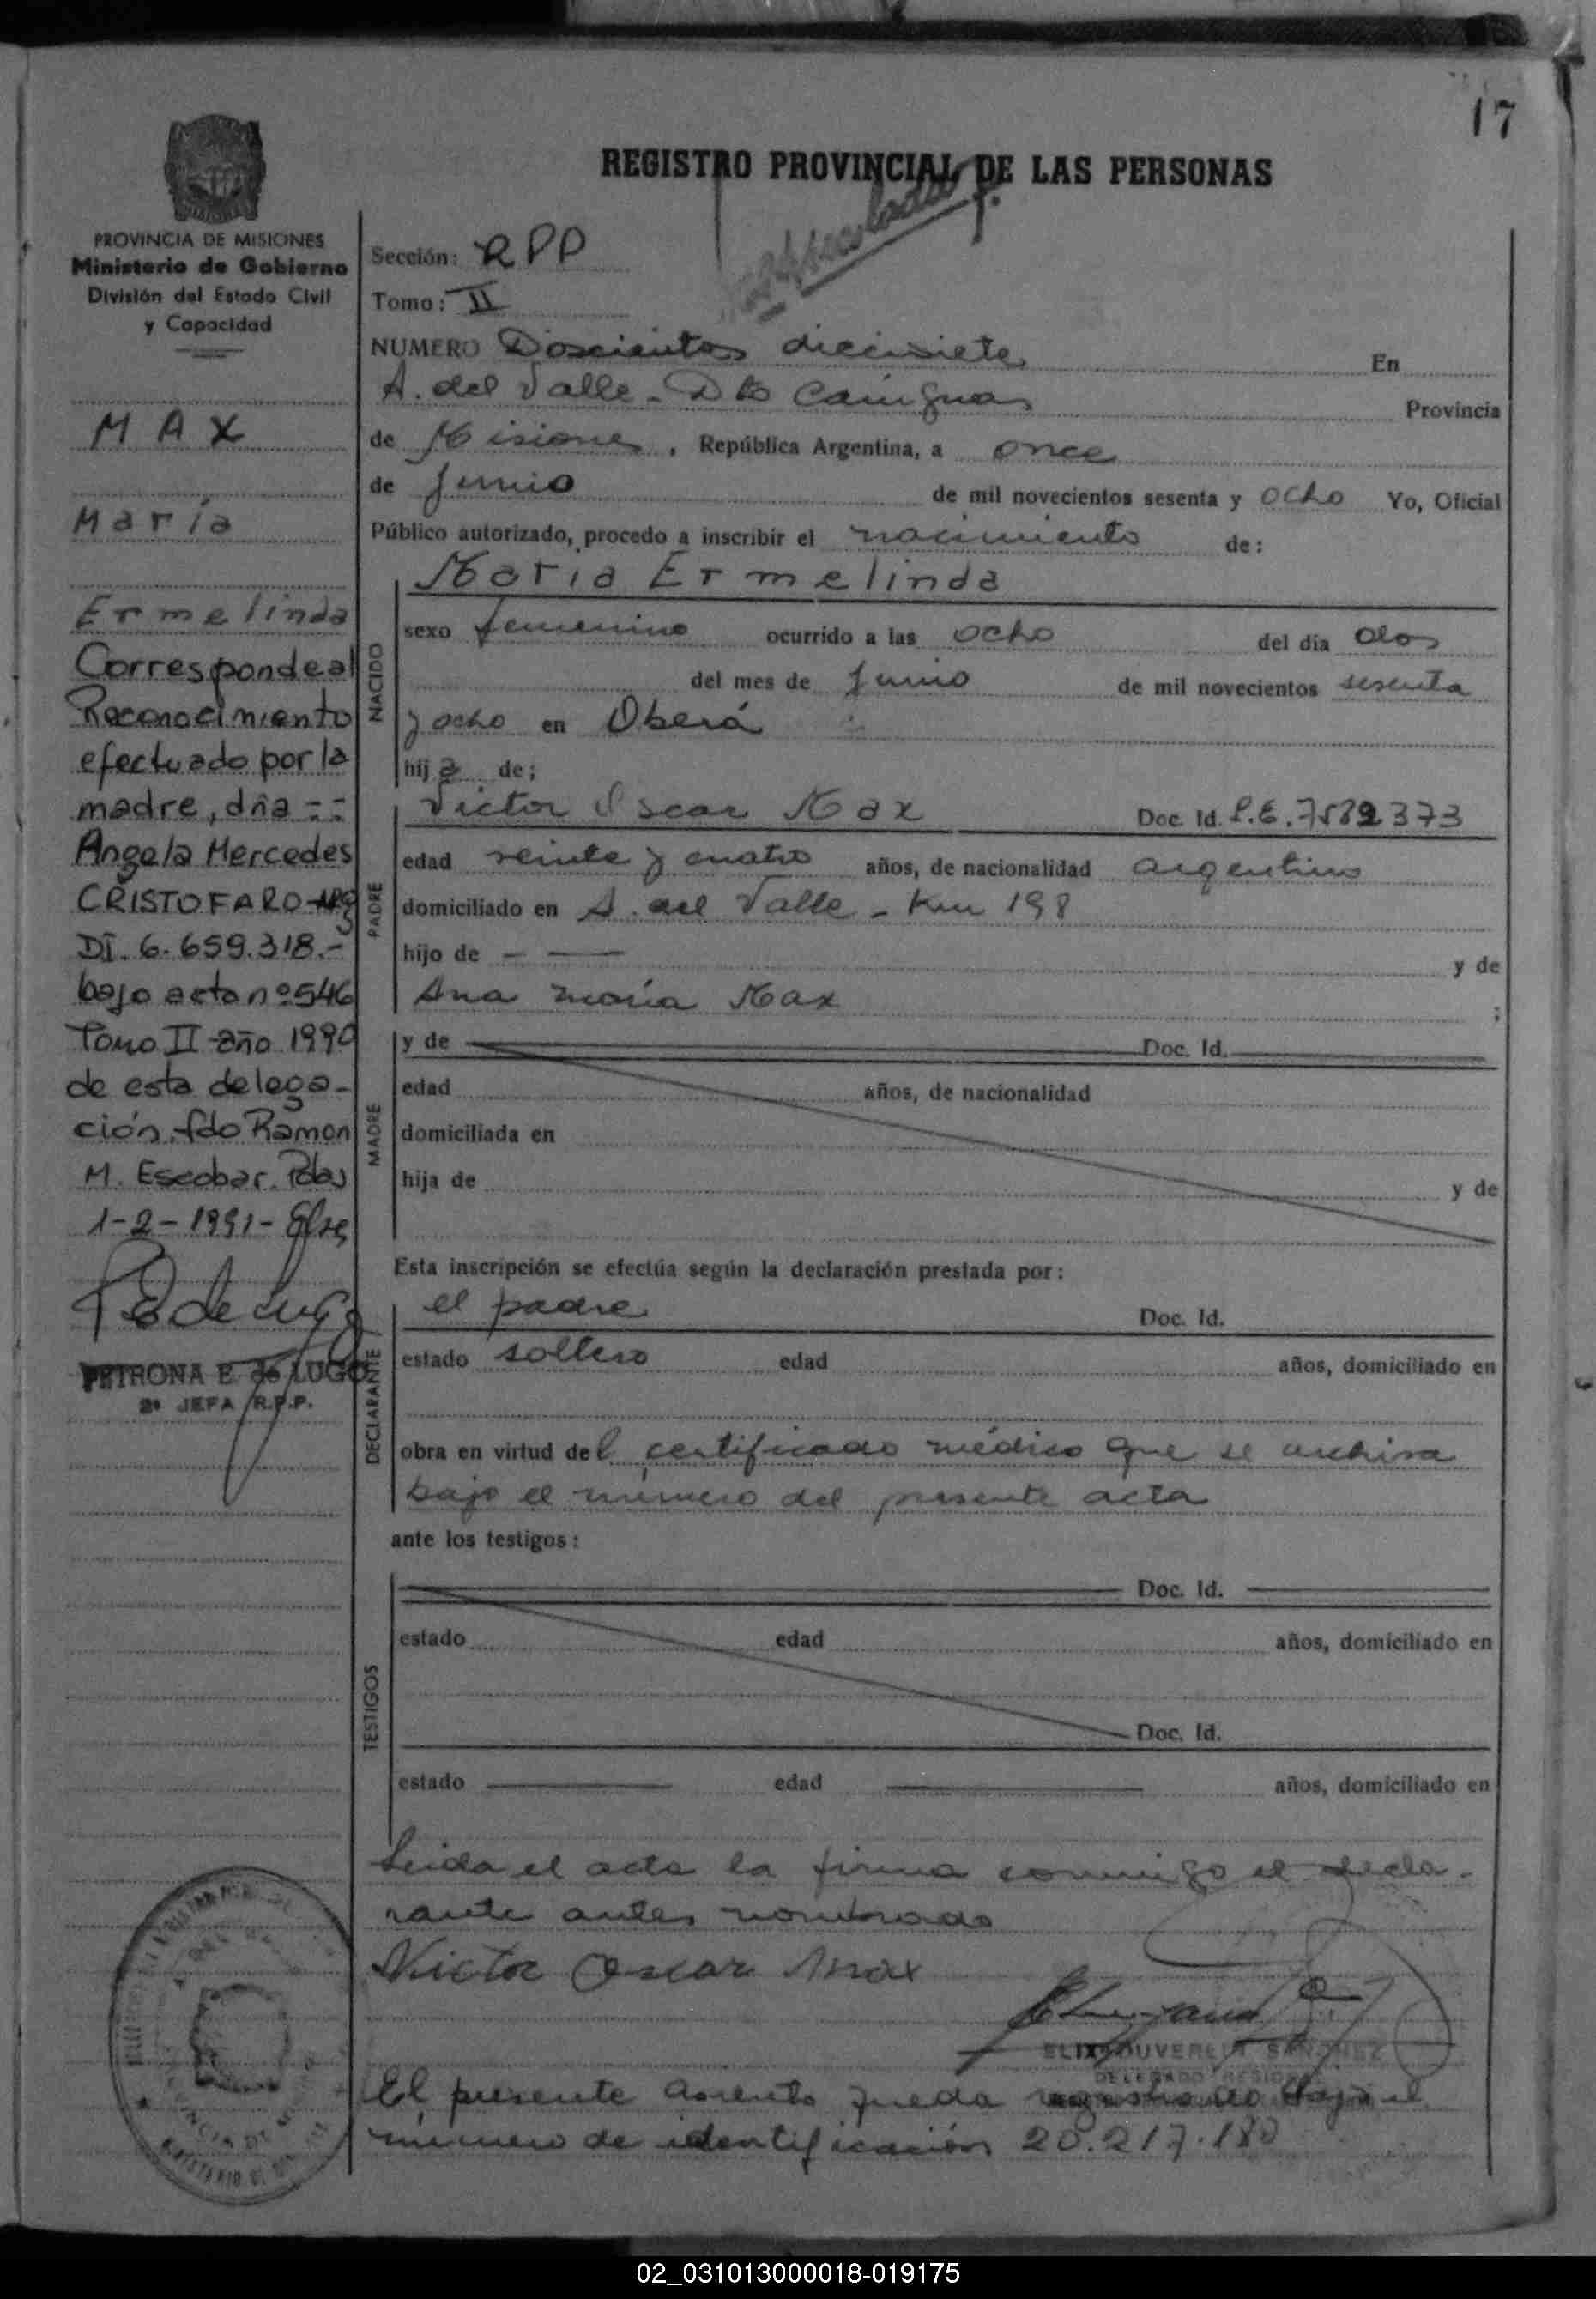 17
REGISTRO PROVINCIAL DE LAS PERSONAS
PROVINCIA DE MISIONES
Ministerio de Gobierno
División del Estado Civil
y Capacidad
MAX
María
Ermelinda
Corresponde al
Reconocimiento
efectuado por la
madre, dña =:
Angela Mercedes
CRISTOFARO-
DI. 6.659.318.-
bajo acta nº 546
Tomo II año 1990
de esta delega-
ción. fdo Ramon
M. Escobar. Pdas
1-2-1991-
PETRONA E de LUGO
2ª JEFA R.P.P.
Sección: RPP
Tomo: II
NUMERO Doscientos diecisiete En
A. del Valle - Dto Cainguas Provincia
de Misiones, República Argentina, a once
de Junio de mil novecientos sesenta y ocho Yo, Oficial
Público autorizado, procedo a inscribir el nacimiento de:
NACIDO
María Ermelinda
sexo femenino ocurrido a las ocho del día dos
del mes de Junio de mil novecientos sesenta
y ocho en Oberá
hija de;
PADRE
Victor Oscar Max Doc. Id. L.E. 7.582.373
edad veinte y cuatro años, de nacionalidad argentino
domiciliado en A. del Valle - Km 198
hijo de - — y de
Ana María Max ;
MADRE
y de Doc. Id.
edad años, de nacionalidad
domiciliada en
hija de y de
Esta inscripción se efectúa según la declaración prestada por:
DECLARANTE
el padre Doc. Id.
estado soltero edad años, domiciliado en
obra en virtud del certificado médico que se archiva
bajo el número del presente acta
ante los testigos:
TESTIGOS
Doc. Id.
estado edad años, domiciliado en
Doc. Id.
estado edad años, domiciliado en
Leida el acta la firma conmigo el decla-
rante antes nombrado
Victor Oscar Max
SANCHEZ
DELEGADO REGIONAL
El presente asiento queda registrado bajo el
número de identificación 20.217.180
02_031013000018-019175